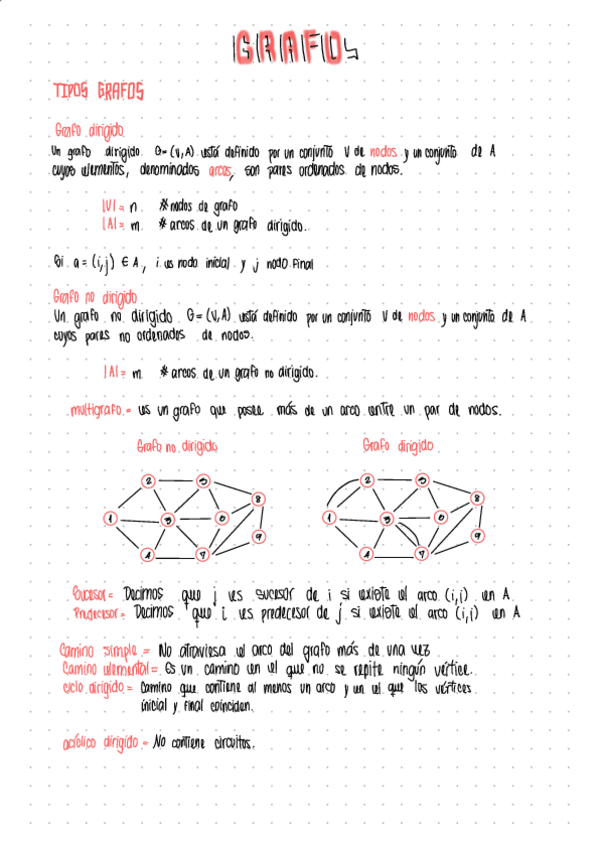 GRAFOS
TIPOS GRAFOS
Grafo dirigido
Un grafo dirigido G=(V,A) está definido por un conjunto V de nodos y un conjunto de A
cuyos elementos, denominados arcos, son pares ordenados de nodos.
|V| = n # nodos de grafo
|A| = m # arcos de un grafo dirigido.
Si a = (i,j) ∈ A, i es nodo inicial y j nodo final
Grafo no dirigido
Un grafo no dirigido G=(V,A) está definido por un conjunto V de nodos y un conjunto de A
cuyos pares no ordenados de nodos.
|A| = m # arcos de un grafo no dirigido.
multigrafo = es un grafo que posee más de un arco entre un par de nodos.
Grafo no dirigido Grafo dirigido
2 5 2 5
8 8
1 3 6 1 3 6
9 9
4 7 4 7
Sucesor = Decimos que j es sucesor de i si existe el arco (i,j) en A
Predecesor = Decimos que i es predecesor de j si existe el arco (i,j) en A
Camino simple = No atraviesa el arco del grafo más de una vez
Camino elemental = Es un camino en el que no se repite ningún vértice.
ciclo dirigido = Camino que contiene al menos un arco y en el que los vértices
inicial y final coinciden.
acíclico dirigido = No contiene circuitos.